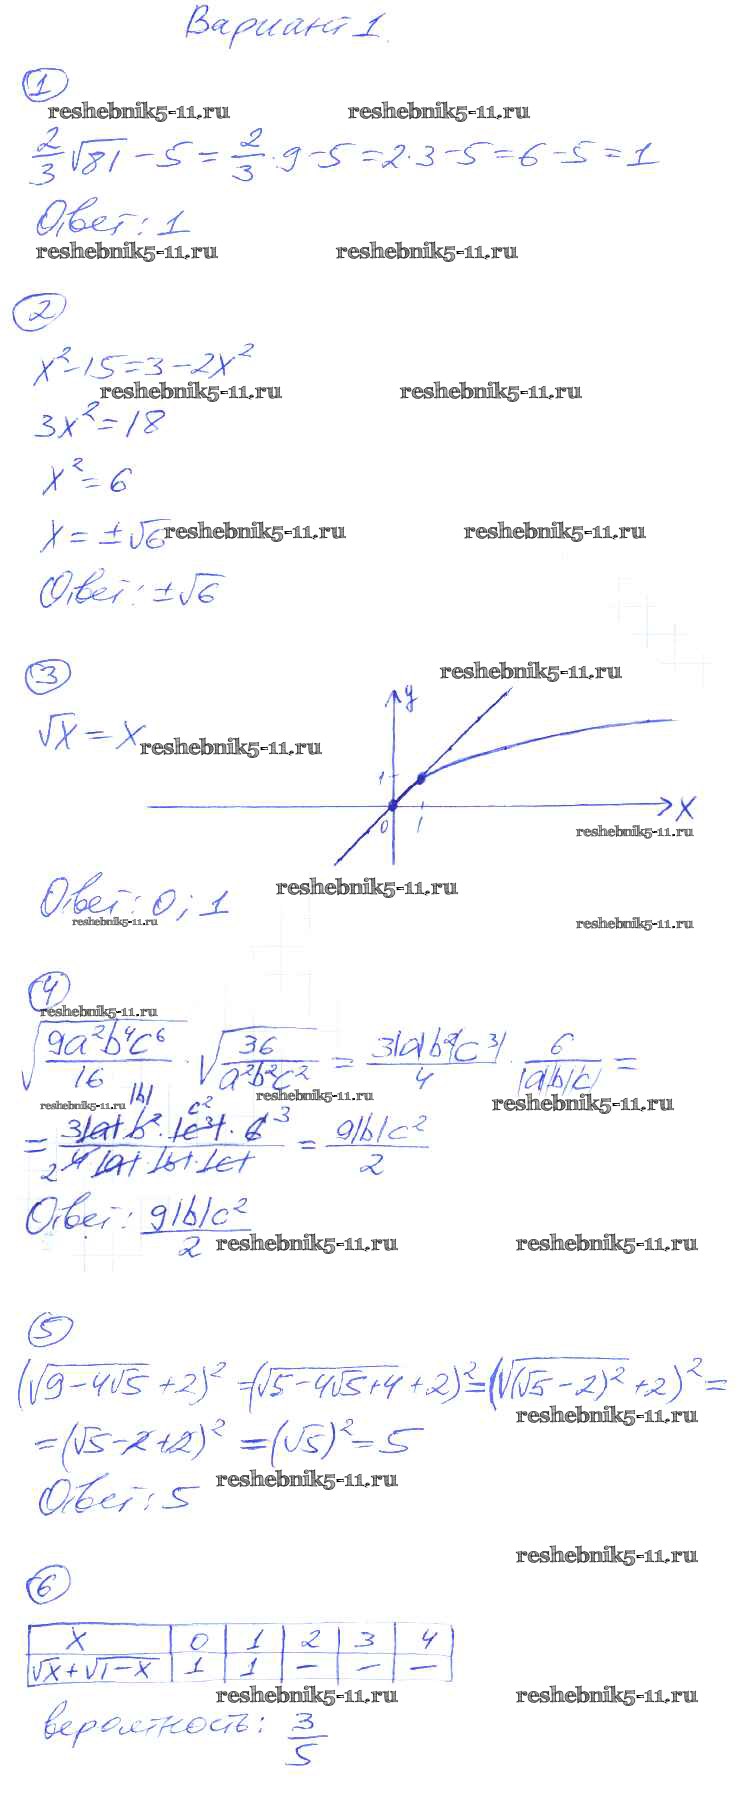 Вариант 1.
1
reshebnik5-11.ru reshebnik5-11.ru
2/3 √81 - 5 = 2/3 · 9 - 5 = 2·3 - 5 = 6 - 5 = 1
Ответ: 1
reshebnik5-11.ru reshebnik5-11.ru
2
x² - 15 = 3 - 2x²
reshebnik5-11.ru reshebnik5-11.ru
3x² = 18
x² = 6
x = ±√6 reshebnik5-11.ru reshebnik5-11.ru
Ответ: ±√6
3 reshebnik5-11.ru
√x = x reshebnik5-11.ru
y
1
0 1 x
reshebnik5-11.ru
reshebnik5-11.ru
Ответ: 0; 1
reshebnik5-11.ru reshebnik5-11.ru
4
reshebnik5-11.ru
√(9a²b⁴c⁶/16) · √(36/(a²b²c²)) = 3|a|b²|c³|/4 · 6/(|a|b|c|) =
reshebnik5-11.ru reshebnik5-11.ru reshebnik5-11.ru
|b| c²
= 3|a| b² · |c³| · 6 3 / 2 4 |a| · |b| · |c| = 9|b|c²/2
Ответ: 9|b|c²/2
reshebnik5-11.ru reshebnik5-11.ru
5
(√(9 - 4√5) + 2)² = (√(5 - 4√5 + 4) + 2)² = (√((√5 - 2)²) + 2)² =
reshebnik5-11.ru
= (√5 - 2 + 2)² = (√5)² = 5
reshebnik5-11.ru
Ответ: 5
reshebnik5-11.ru
6
x 0 1 2 3 4
√x + √(1-x) 1 1 - - -
reshebnik5-11.ru reshebnik5-11.ru
вероятность: 3/5